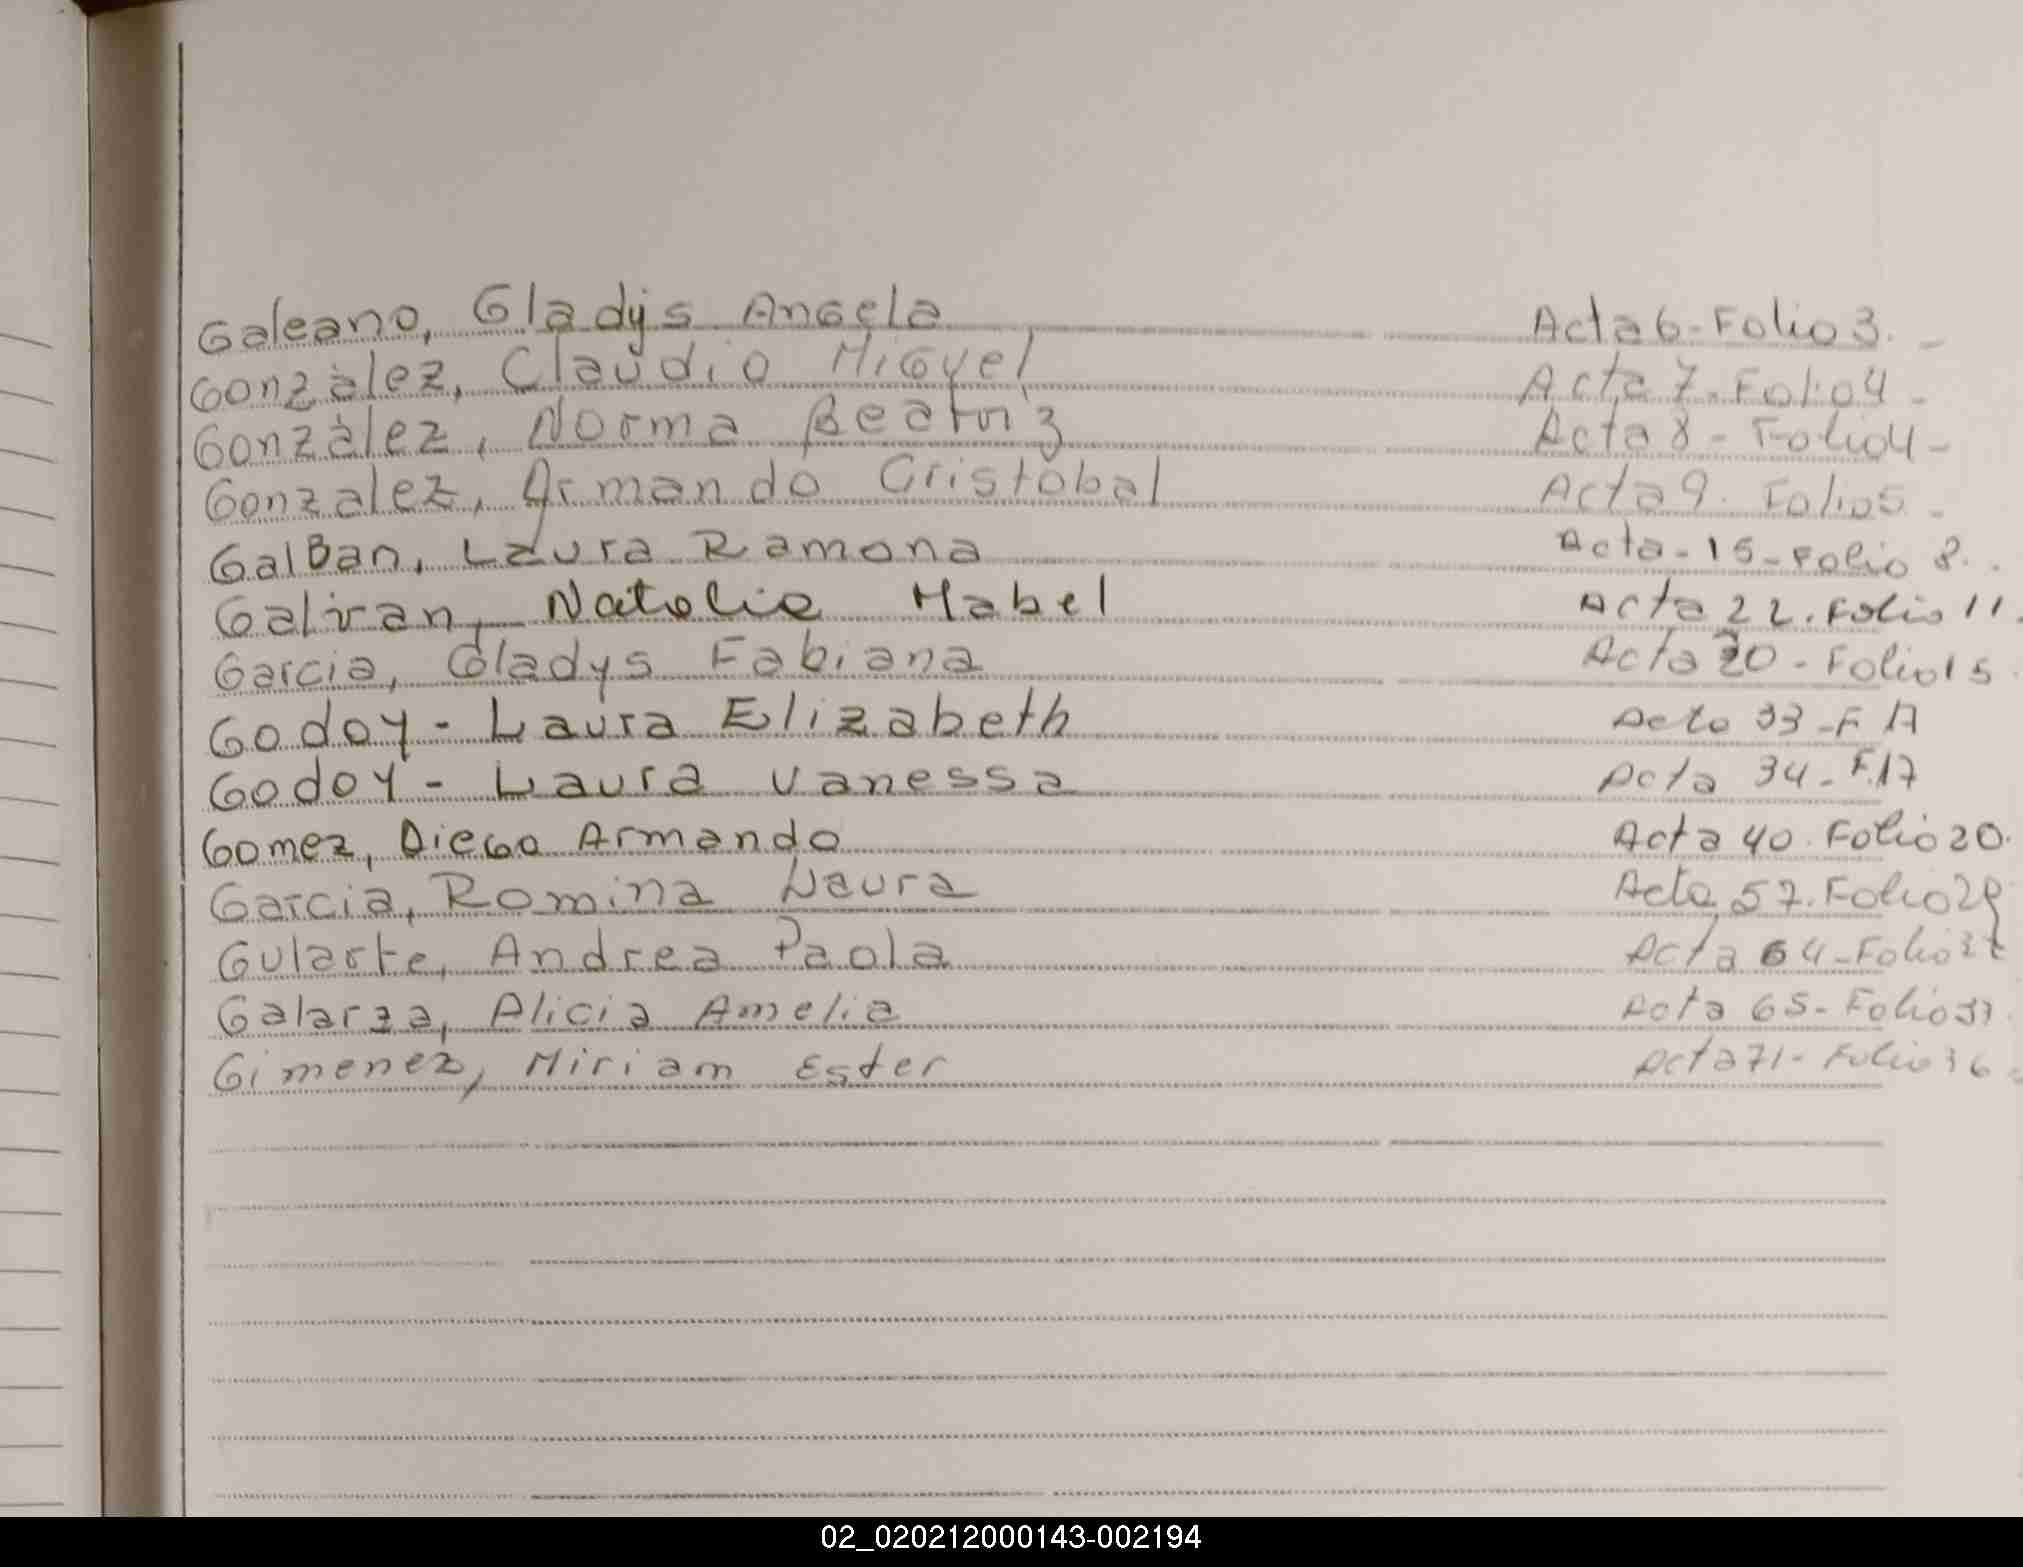 Galeano, Gladys Angela Acta 6 - Folio 3. -
Gonzàlez, Claudio Miguel Acta 7. Folio 4 -
Gonzàlez, Norma Beatriz Acta 8 - Folio 4 -
Gonzalez, Armando Cristobal Acta 9. Folio 5 -
GalBan, Laura Ramona Acta - 15 - Folio 8. .
Galvan, Natalia Mabel Acta 22. Folio 11.
Garcia, Gladys Fabiana Acta 30 - Folio 15
Godoy - Laura Elizabeth Acta 33 - F 17
Godoy - Laura Vanessa Acta 34 - F.17
Gomez, Diego Armando Acta 40. Folio 20.
Garcia, Romina Laura Acta 57. Folio 29
Gularte, Andrea Paola Acta 64 - Folio 32
Galarza, Alicia Amelia Acta 65 - Folio 33.
Gimenez, Miriam Ester Acta 71 - Folio 36
02_020212000143-002194